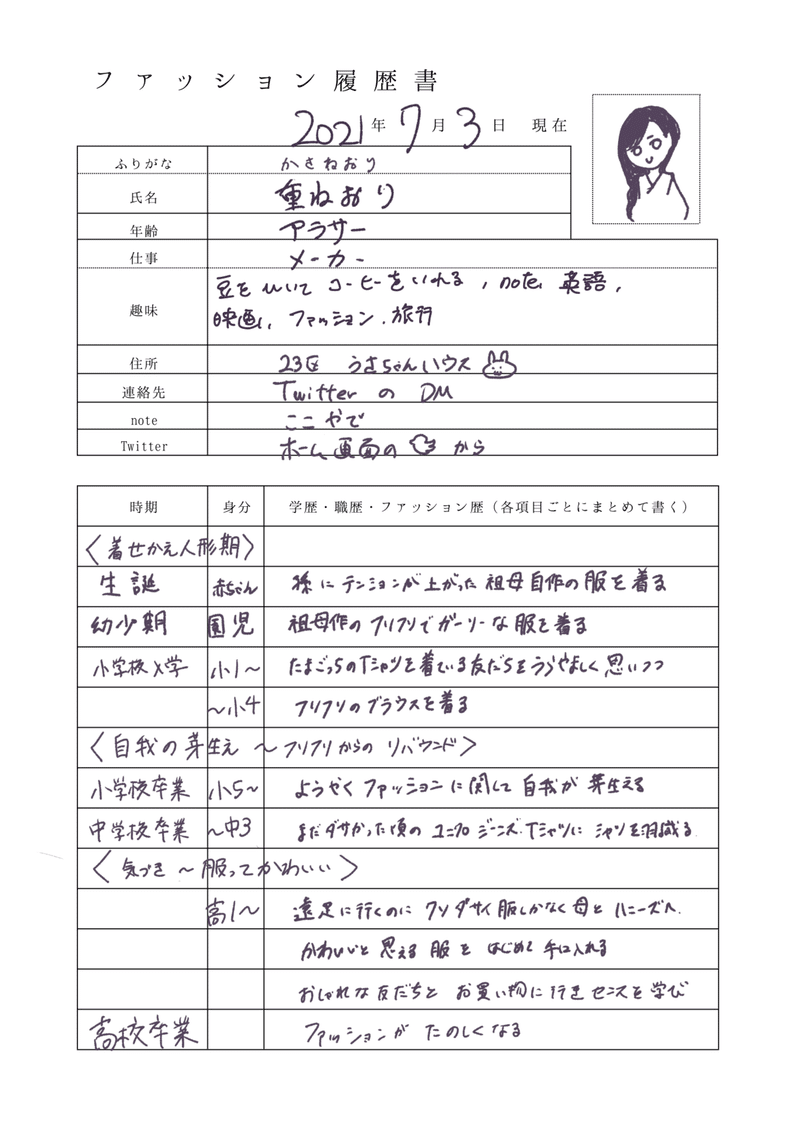 ファッション履歴書
2021年7月3日 現在
ふりがな かさねおり
氏名 重ねおり
年齢 アラサー
仕事 メーカー
趣味 豆をひいてコーヒーをいれる、note、英語、
映画、ファッション、旅行
住所 23区 うさちゃんハウス
連絡先 TwitterのDM
note ここやで
Twitter ホーム画面の から
時期 身分 学歴・職歴・ファッション歴（各項目ごとにまとめて書く）
〈着せかえ人形期〉
生誕 赤ちゃん 孫にテンションが上がった祖母自作の服を着る
幼少期 園児 祖母作のフリフリでガーリーな服を着る
小学校入学 小1〜 たまごっちのTシャツを着ている友だちをうらやましく思いつつ
〜小4 フリフリのブラウスを着る
〈自我の芽生え 〜フリフリからのリバウンド〉
小学校卒業 小5〜 ようやくファッションに関して自我が芽生える
中学校卒業 〜中3 まだダサかった頃のユニクロジーンズ、Tシャツにシャツを羽織る
〈気づき 〜服ってかわいい〉
高1〜 遠足に行くのにクソダサイ服しかなく母とハニーズへ、
かわいいと思える服をはじめて手に入れる
おしゃれな友だちとお買い物に行きセンスを学び
高校卒業 ファッションがたのしくなる